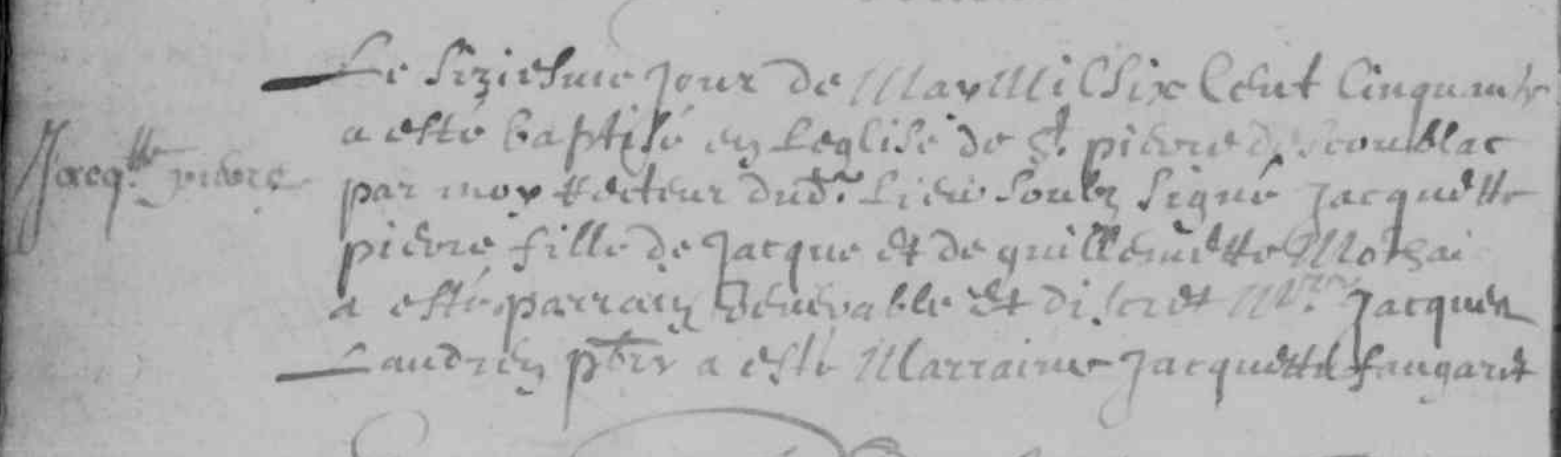 Le siziesme jour de May Mil Six Cent Cinquante
a esté baptisé en Leglise de St. pierre descoublac
Jacqtte pierre
par moy Recteur dud. Lieu soubz signé Jacquette
pierre fille de Jacque et de guillemette Mo
a esté parrain Venerable et discret Mre Jacques
Landrin pbre a esté Marraine Jacquette fangaret